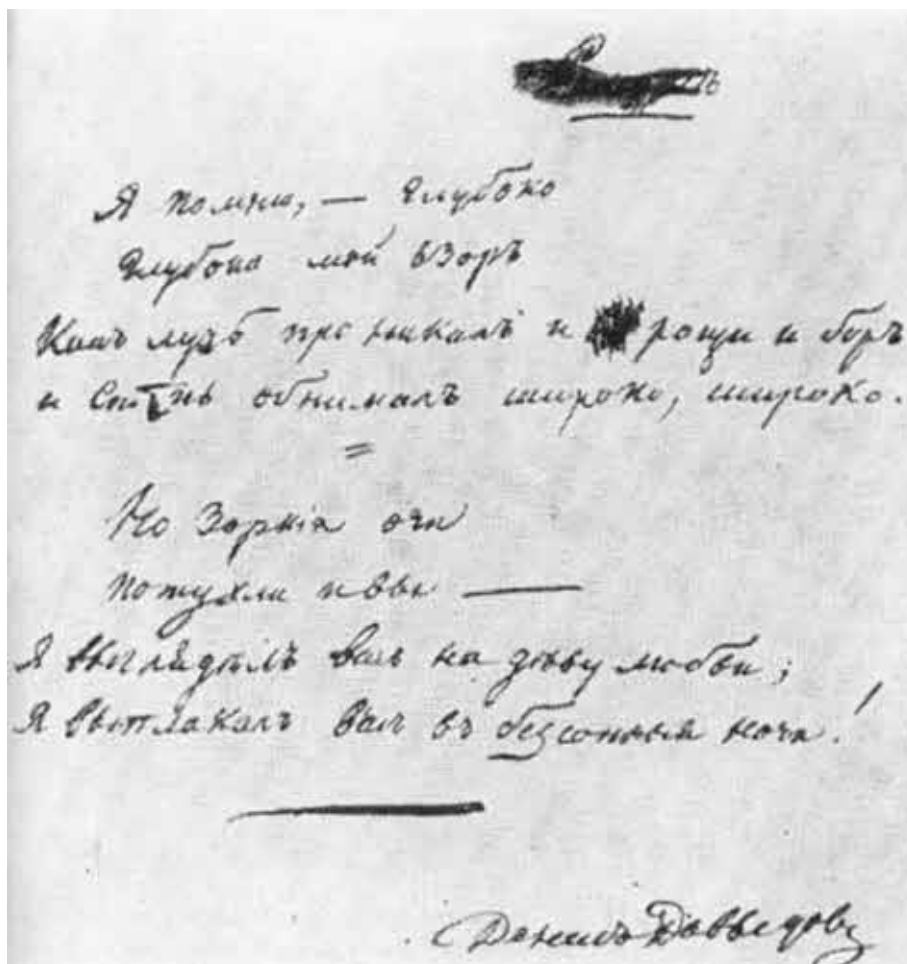 Я помню, — глубоко
Глубоко мой взоръ
Какъ лучъ проникалъ и рощи и боръ
и Степь обнималъ широко, широко.
=
Но Зоркія очи
Потухли и вы —
Я выглядѣлъ васъ на дѣву любви;
Я выплакалъ васъ въ безсонныя ночи!
Денисъ Давыдовъ